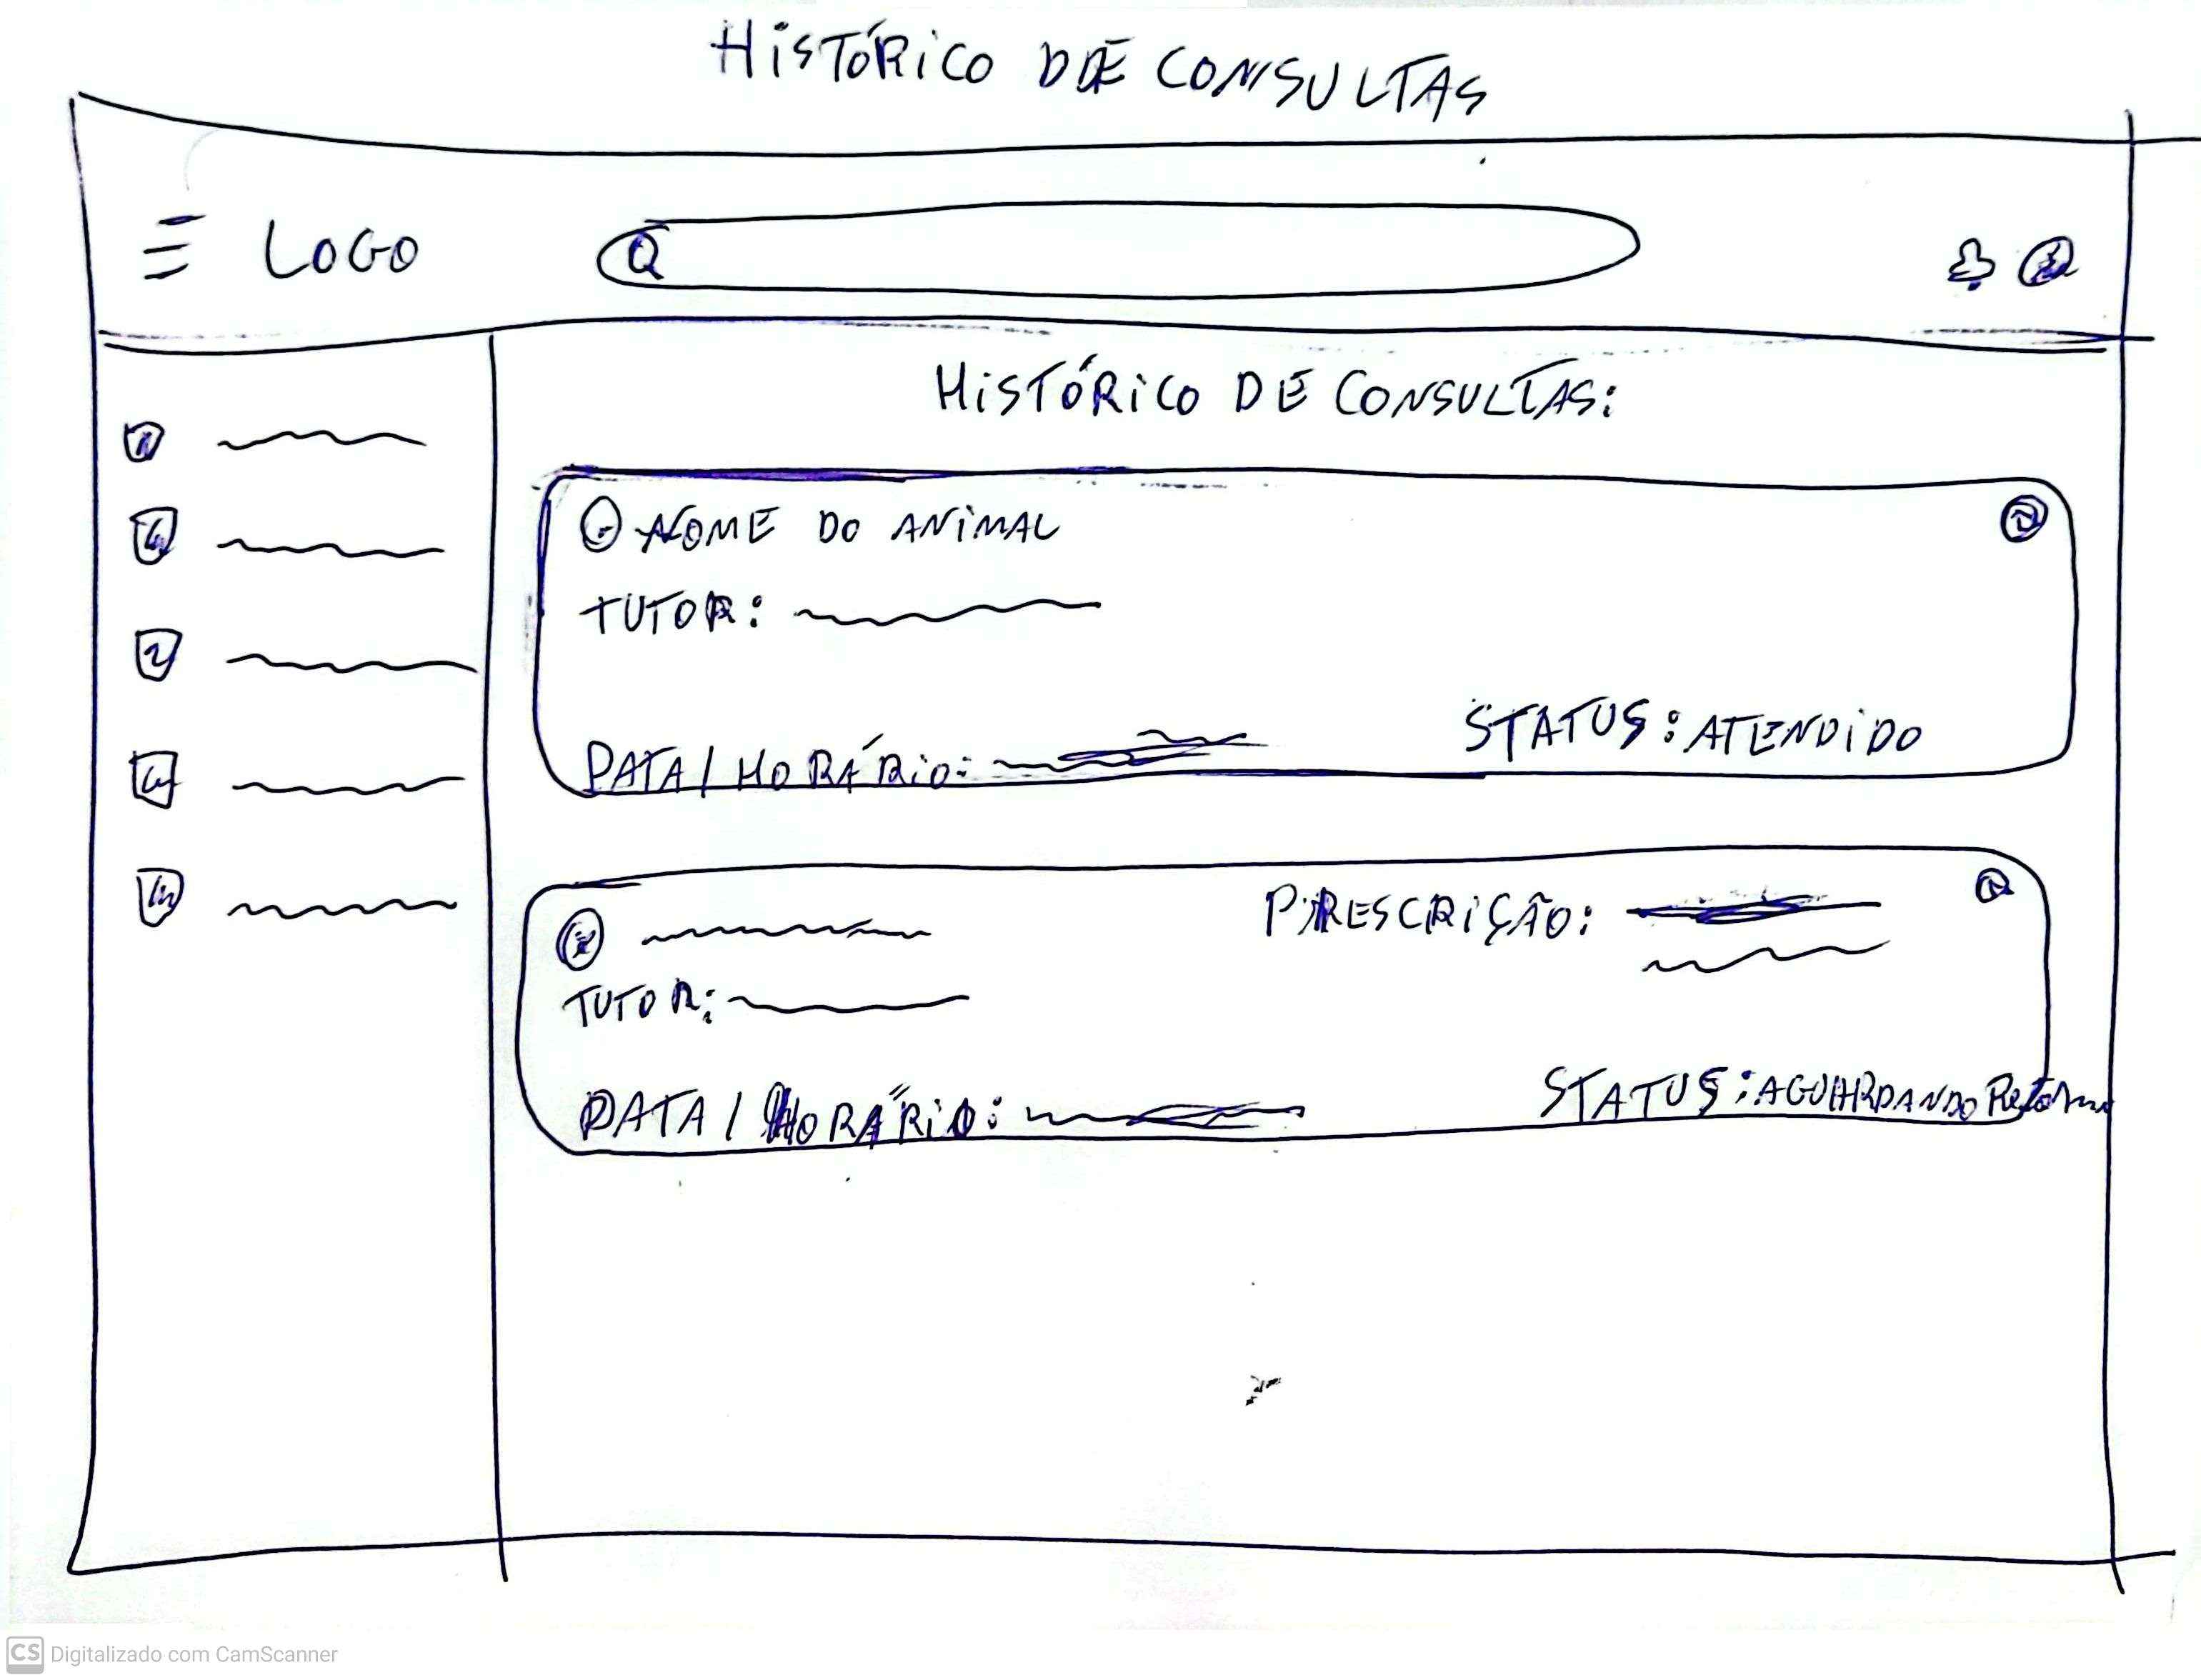 HISTÓRICO DE CONSULTAS
LOGO
HISTÓRICO DE CONSULTAS:
NOME DO ANIMAL
TUTOR:
DATA / HORÁRIO:
STATUS: ATENDIDO
PRESCRIÇÃO:
TUTOR:
DATA / HORÁRIO:
STATUS: AGUARDANDO Retorno
CS Digitalizado com CamScanner